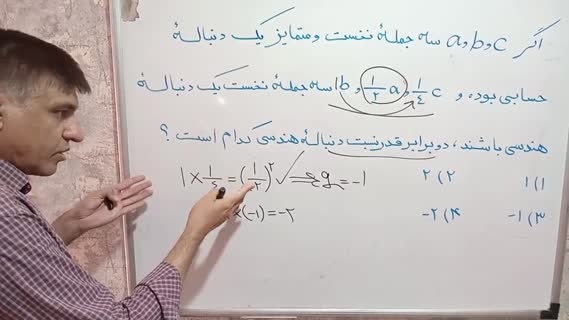 اگر a و b و c سه جملهٔ نخست و متمایز یک دنبالهٔ
حسابی بوده و 1/4 c و 1/2 a و 1b سه جملهٔ نخست یک دنبالهٔ
هندسی باشند، دو برابر قدرنسبت دنبالهٔ هندسی کدام است؟
۱) ۱ ۲) ۲
۳) -۱ ۴) -۲
1 × 1/4 = (1/2)² √ = -1
×(-1) = -2